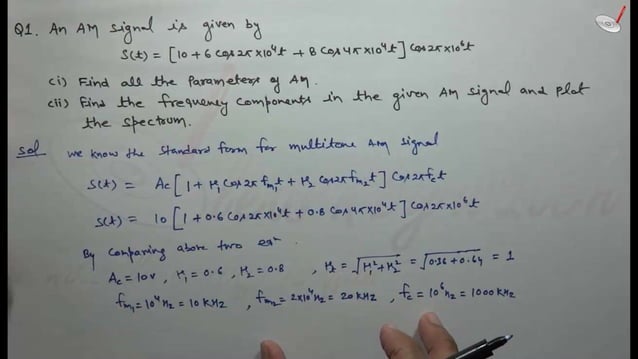 Q1. An AM signal is given by
S(t) = [10 + 6 cos 2π×10⁴t + 8 cos 4π×10⁴t] cos 2π×10⁶t
(i) Find all the Parameters of AM.
(ii) Find the frequency components in the given AM signal and plot
the spectrum.
Sol we know the standard form for multitone AM signal
S(t) = Ac[1 + μ₁ cos 2π fm₁t + μ₂ cos 2π fm₂t] cos 2π fct
S(t) = 10[1 + 0.6 cos 2π×10⁴t + 0.8 cos 4π×10⁴t] cos 2π×10⁶t
By comparing above two eqⁿ
Ac = 10v , μ₁ = 0.6 , μ₂ = 0.8 , μt = √μ₁²+μ₂² = √0.36 + 0.64 = 1
fm₁ = 10⁴Hz = 10 kHz , fm₂ = 2×10⁴Hz = 20 kHz , fc = 10⁶Hz = 1000 kHz